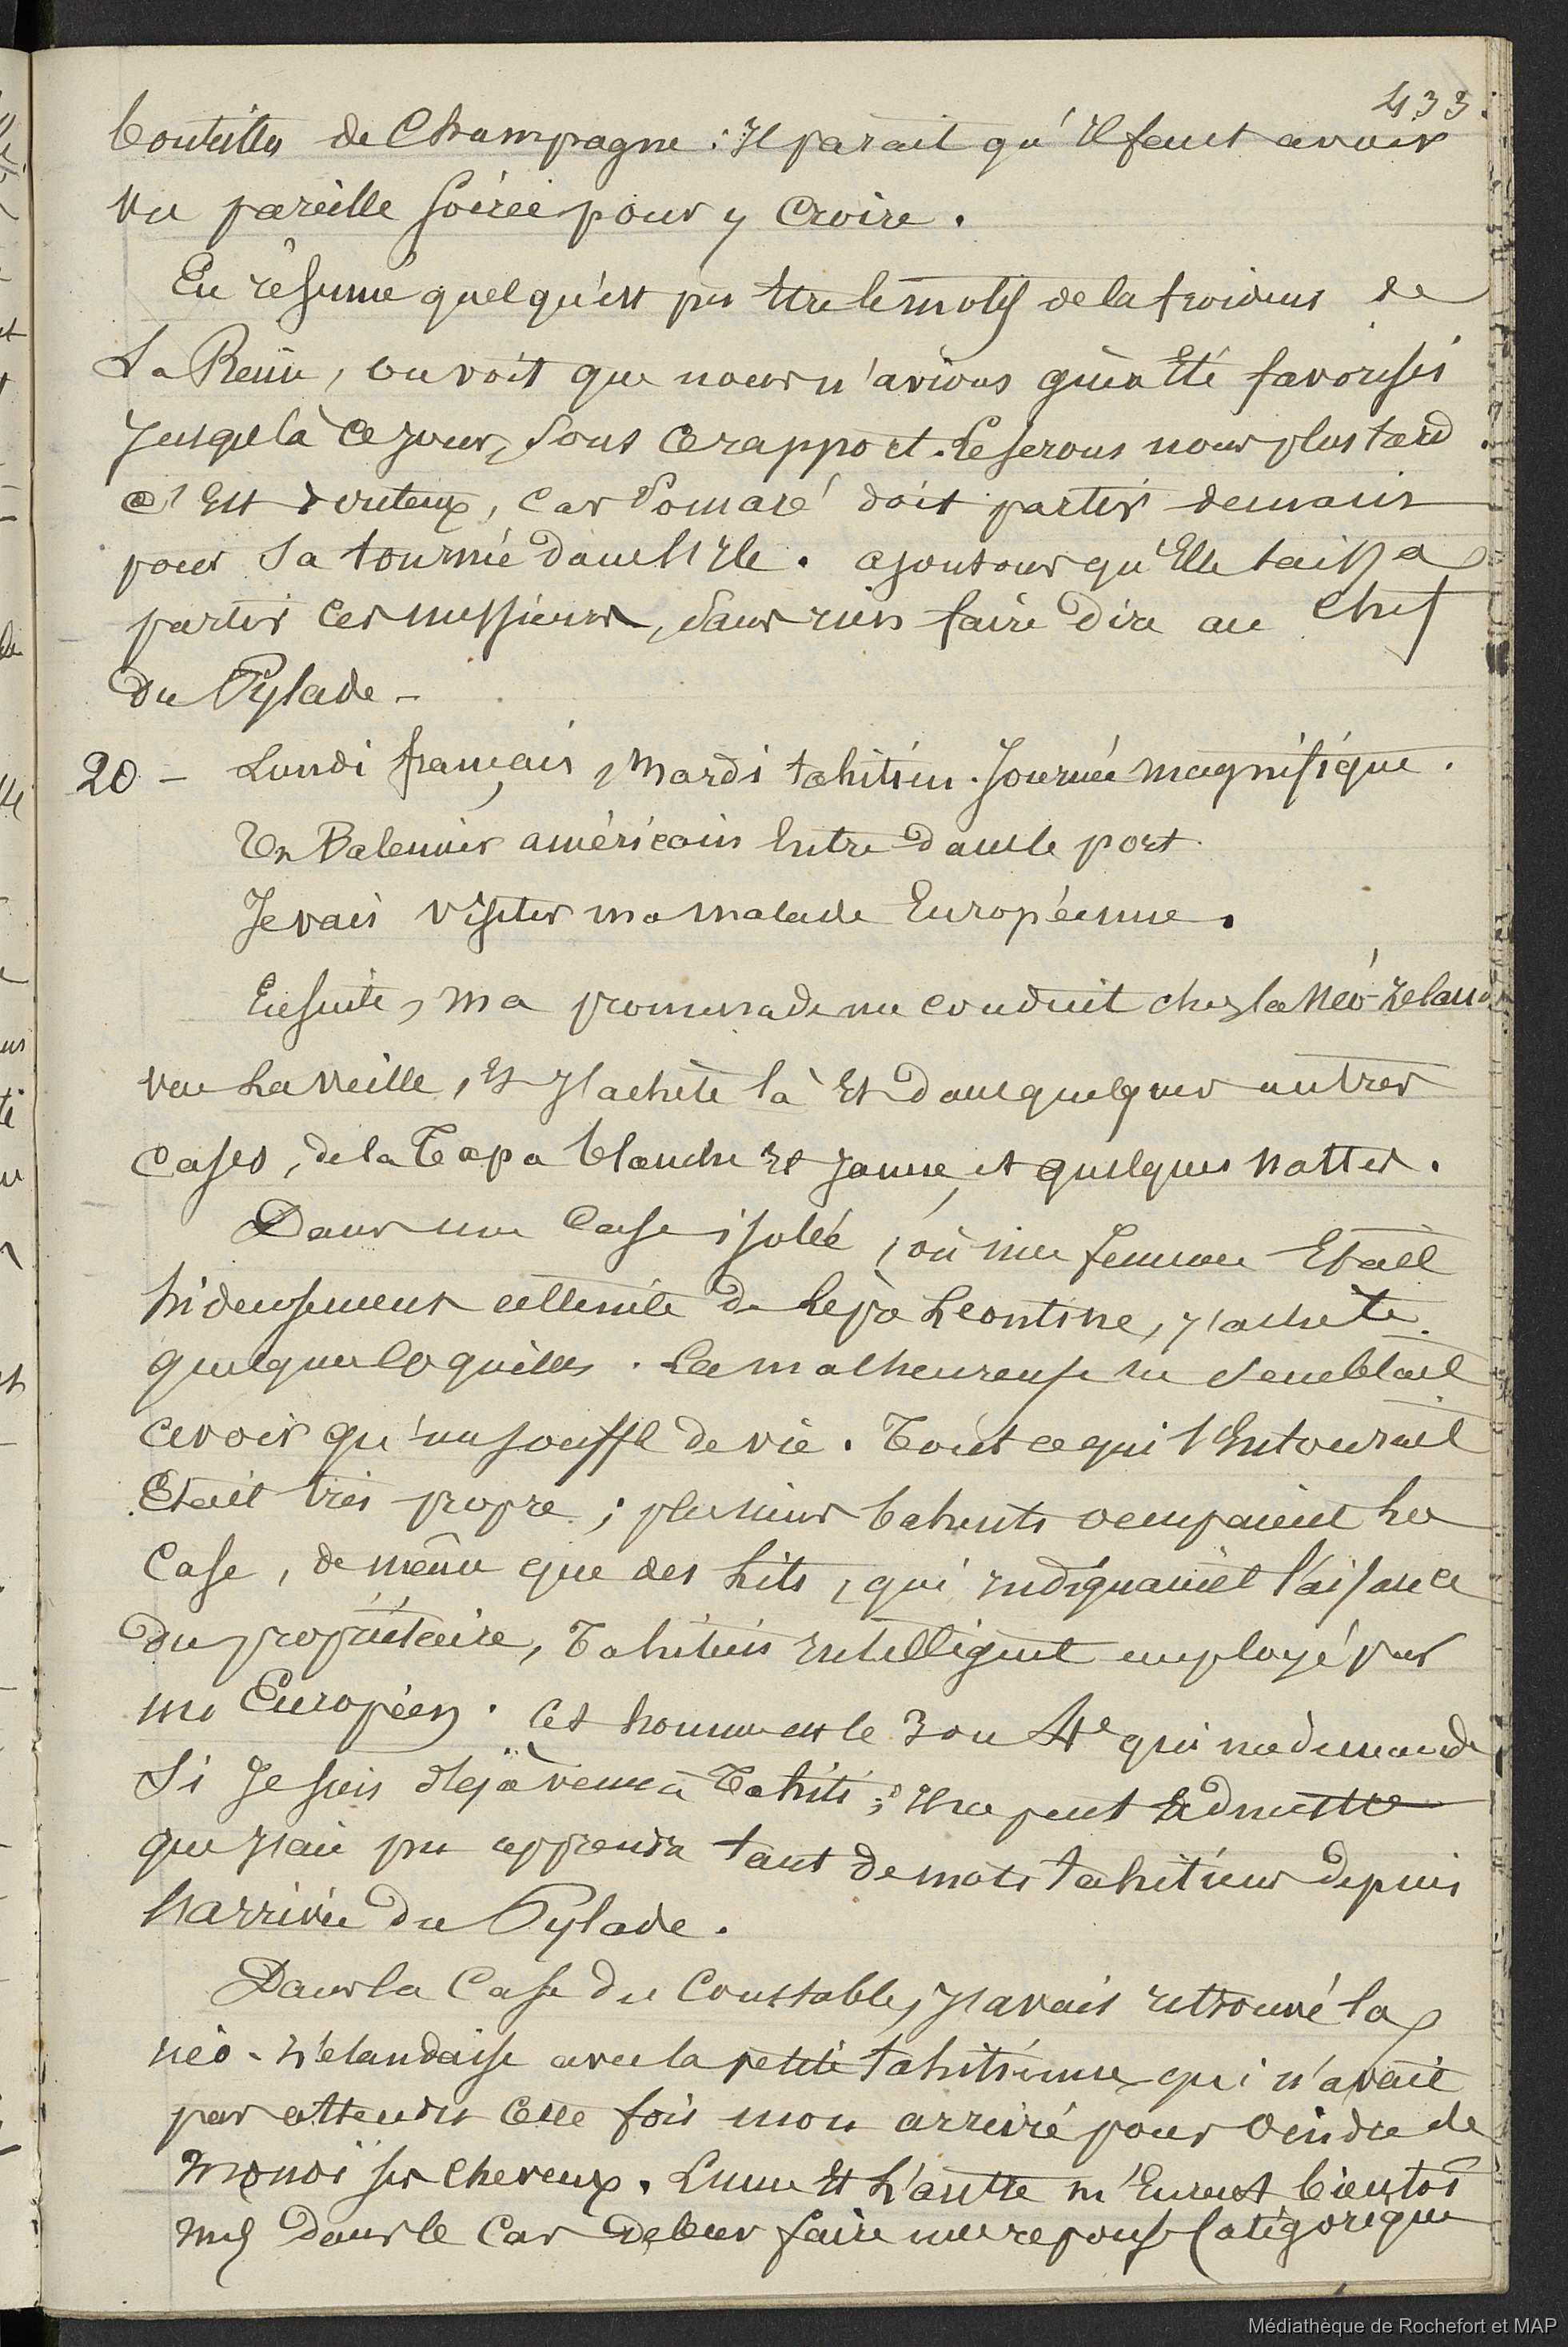 433.
bouteilles de Champagne : Il parait qu'Il faut avoir
vu pareille soirée pour y croire.
En résumé quelqu'est pu être le motif de la froideur de
La Reine, on voit que nous n'avions guère Été favorisés
Jusqu'à ce jour, sous ce rapport. Le serons nous plus tard
C'Est douteux, car Pomaré doit partir demain
pour sa tournée dans l'Ile. ajoutons qu'Elle laissa
partir ces messieurs, sans rien faire dire au chef
du Pylade -
20 - Lundi français, Mardi tahitien. Journée magnifique.
Un Baleinier américain Entre dans le port
Je vais visiter ma malade Européenne.
Ensuite, ma promenade me conduit chez la Néo-Zeland
vue La veille, Et J'achète là Et dans quelques autres
cases, de la Tapa blanche Et jaune, et quelques nattes.
Dans une case isolée, où une femme Etait
hideusement atteinte de Lépra Léontine, j'achète
quelques coquilles. La malheureuse ne semblait
avoir qu'un souffle de vie. Tout ce qui l'Entourait
Etait très propre ; plusieurs bahuts occupaient la
case, de même que des lits, qui Indiquaient l'aisance
du propriétaire, Tahitien Intelligent employé par
un Européen. Cet homme est le 3 ou 4e qui me demande
Si Je suis déjà venu à Tahiti ; Il ne peut admettre
que J'aie pu apprendre tant de mots tahitiens depuis
L'arrivée du Pylade.
Dans la Case du Constable, J'avais retrouvé la
néo-zélandaise avec la petite tahitienne qui n'avait
pas attendu cette fois mon arrivée pour oindre de
Monoï ses cheveux. L'une Et L'autre m'Eurent bientôt
mis dans le cas de leur faire une réponse catégorique
Médiathèque de Rochefort et MAP